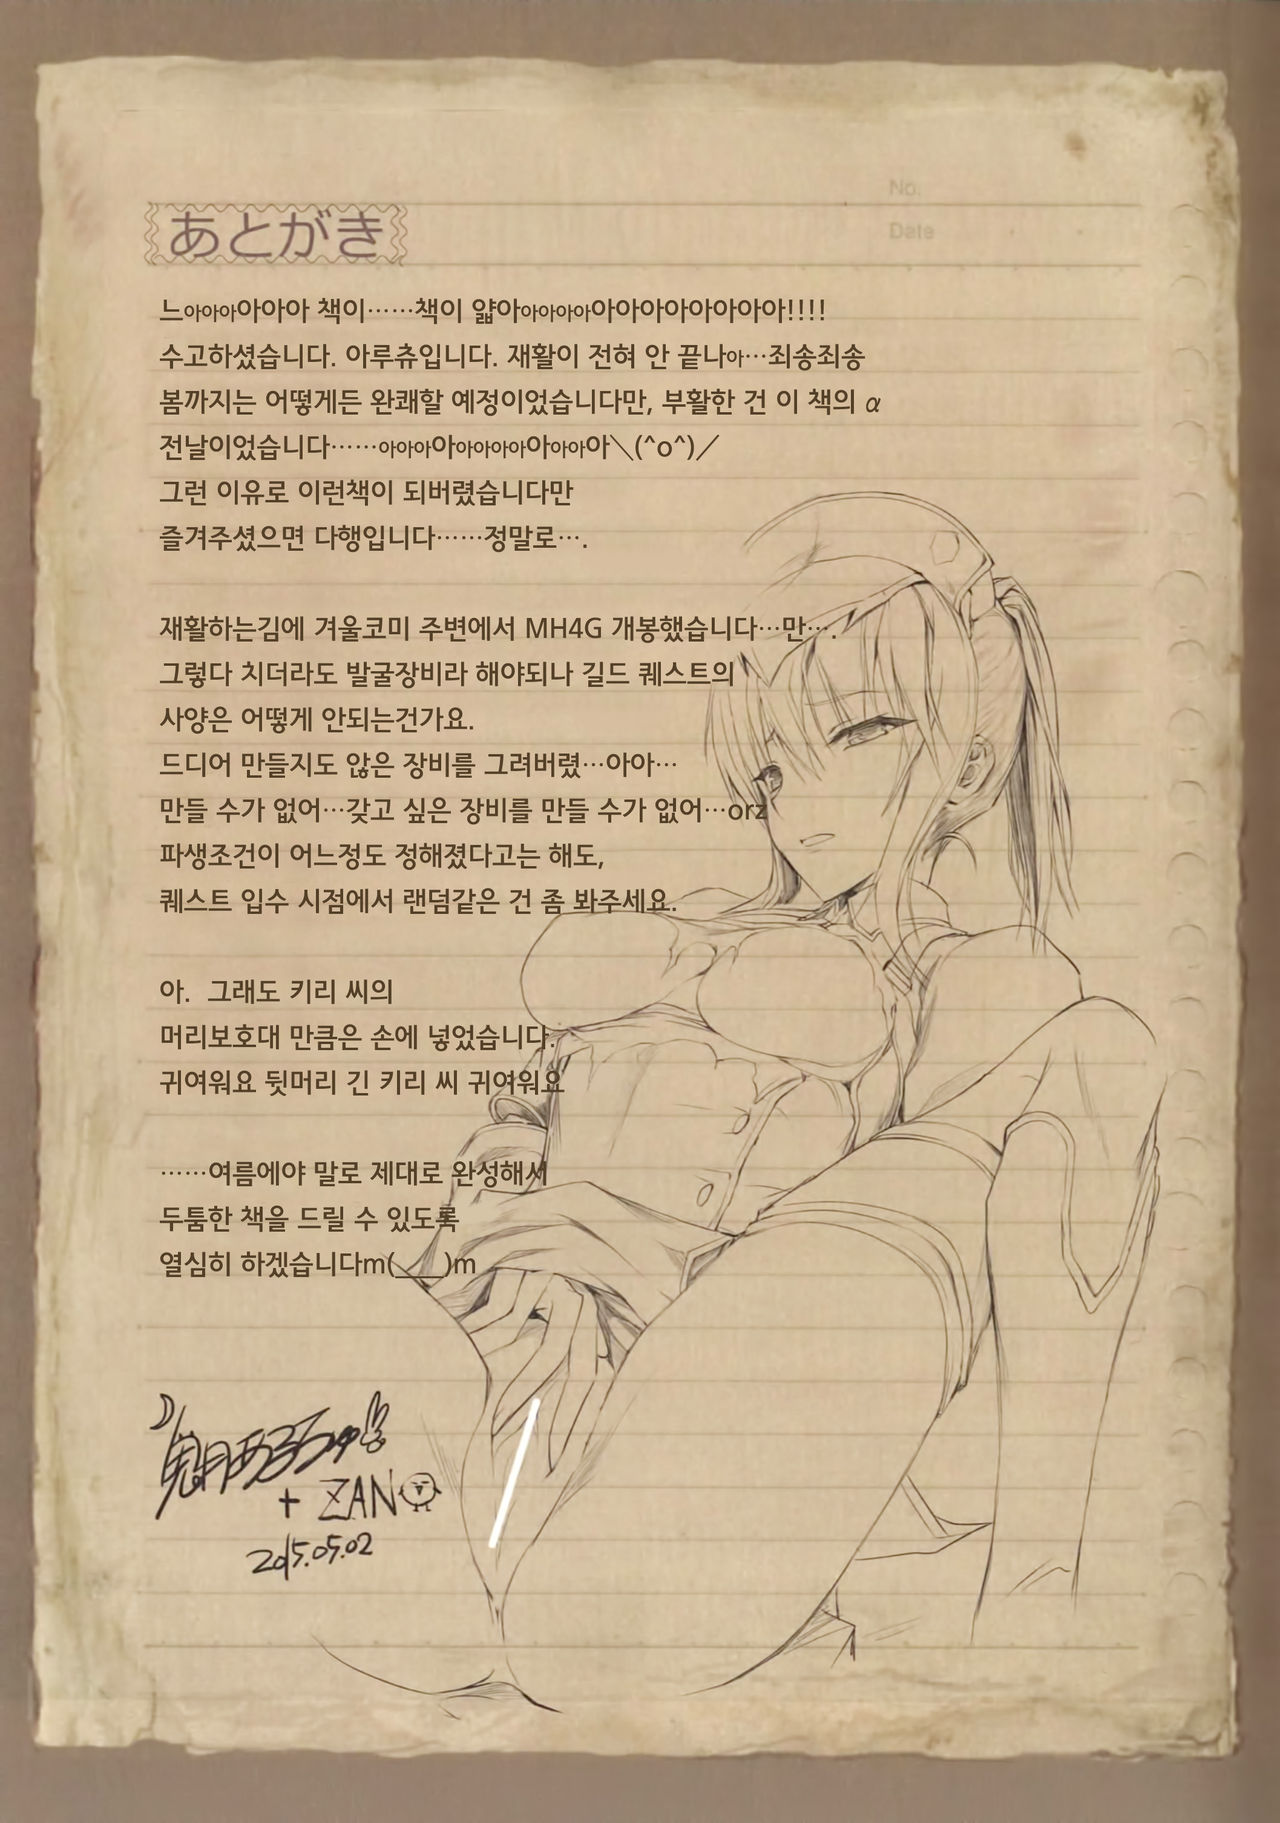 No.
Date
あとがき
느아아아아아아 책이……책이 얇아아아아아아아아아아아아아!!!!
수고하셨습니다. 아루츄입니다. 재활이 전혀 안 끝나아…죄송죄송
봄까지는 어떻게든 완쾌할 예정이었습니다만, 부활한 건 이 책의 α
전날이었습니다……아아아아아아아아아아아아＼(^o^)／
그런 이유로 이런책이 되버렸습니다만
즐겨주셨으면 다행입니다……정말로….
재활하는김에 겨울코미 주변에서 MH4G 개봉했습니다…만….
그렇다 치더라도 발굴장비라 해야되나 길드 퀘스트의
사양은 어떻게 안되는건가요.
드디어 만들지도 않은 장비를 그려버렸…아아…
만들 수가 없어…갖고 싶은 장비를 만들 수가 없어…orz
파생조건이 어느정도 정해졌다고는 해도,
퀘스트 입수 시점에서 랜덤같은 건 좀 봐주세요.
아.  그래도 키리 씨의
머리보호대 만큼은 손에 넣었습니다.
귀여워요 뒷머리 긴 키리 씨 귀여워요
……여름에야 말로 제대로 완성해서
두툼한 책을 드릴 수 있도록
열심히 하겠습니다m(___)m
鬼月あるちゅ
+ ZAN
2015.05.02